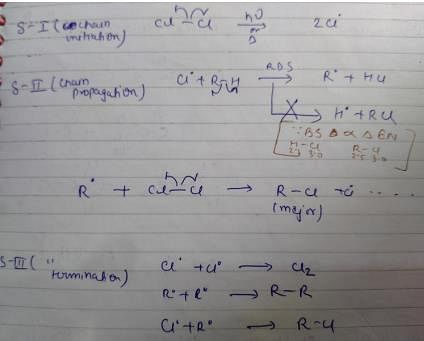 S-I (chain initiation) Cl—Cl hν or Δ 2Cl•
S-II (chain propagation) Cl• + R—H RDS → R• + HCl
→ H• + RCl
∵ BS α Δ EN
H-Cl R-Cl
2.1 3.0 2.5 3.0
R• + Cl—Cl → R-Cl + Cl• ....
(major)
S-III ( " termination) Cl• + Cl• → Cl₂
R• + R• → R-R
Cl• + R• → R-Cl